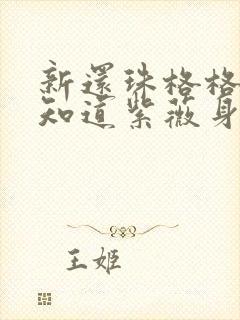 新還珠格格
知道紫薇身
王姬